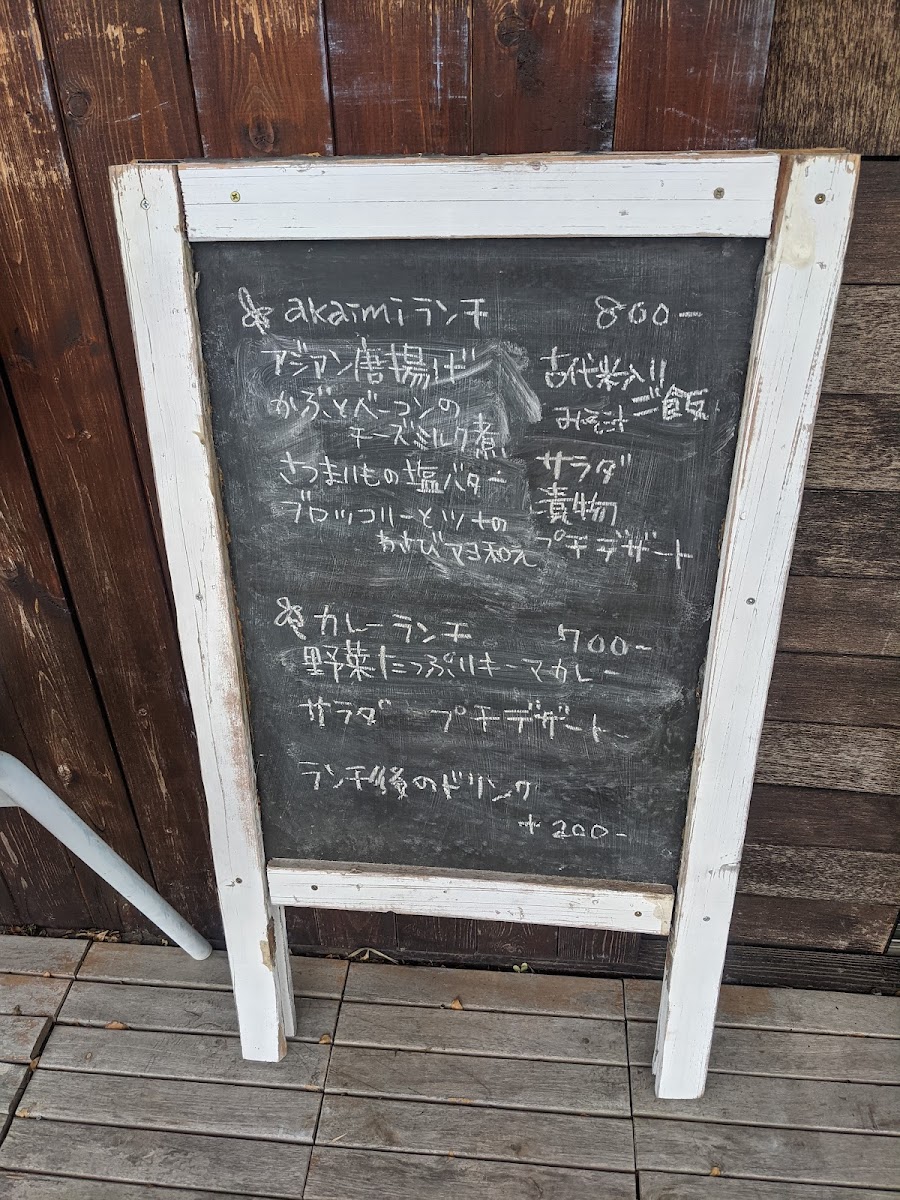 akaimiランチ 800-
アジアン唐揚げ
かぶとベーコンの
チーズミルク煮
さつまいもの塩バター
ブロッコリーとツナの
わさびマヨ和え
古代米入り
ご飯
みそ汁
サラダ
漬物
プチデザート
カレーランチ 700-
野菜たっぷりキーマカレー
サラダ プチデザート
ランチ後のドリンク
+200-